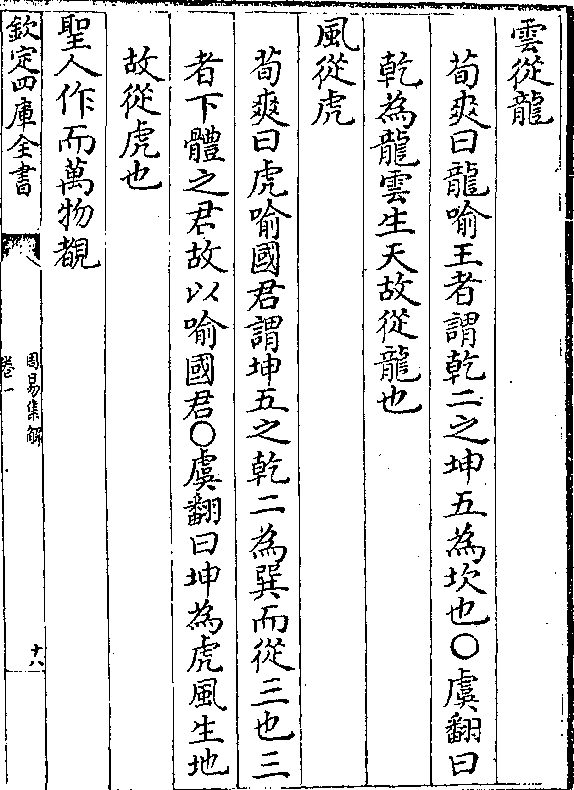 雲從龍
荀爽曰龍喻王者謂乾二之坤五為坎也〇虞翻曰
乾為龍雲生天故從龍也
風從虎
荀爽曰虎喻國君謂坤五之乾二為巽而從三也三
者下體之君故以喻國君〇虞翻曰坤為虎風生地
故從虎也
聖人作而萬物覩
欽定四庫全書
周易集解
卷一
十八